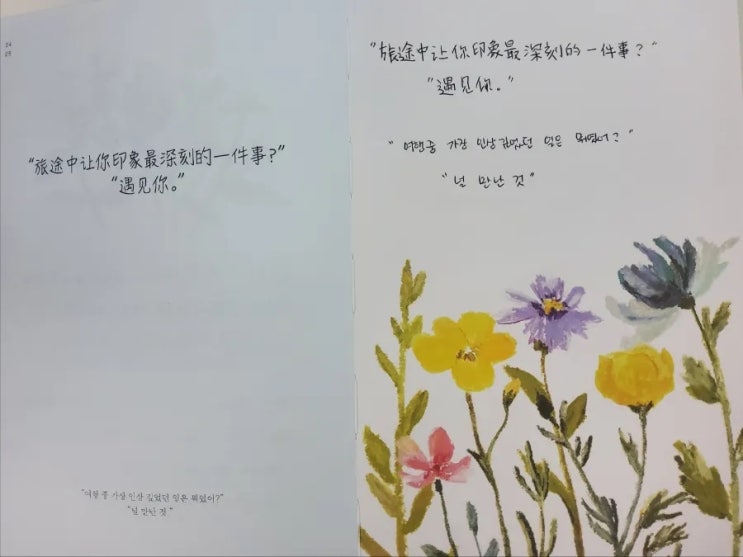 24
25
"旅途中让你印象最深刻的一件事?"
"遇见你。"
"여행 중 가장 인상 깊었던 일은 뭐였어?"
"널 만난 것."
"旅途中让你印象最深刻的一件事?"
"遇见你。"
"여행중 가장 인상 깊었던 일은 뭐였어?"
"널 만난 것"